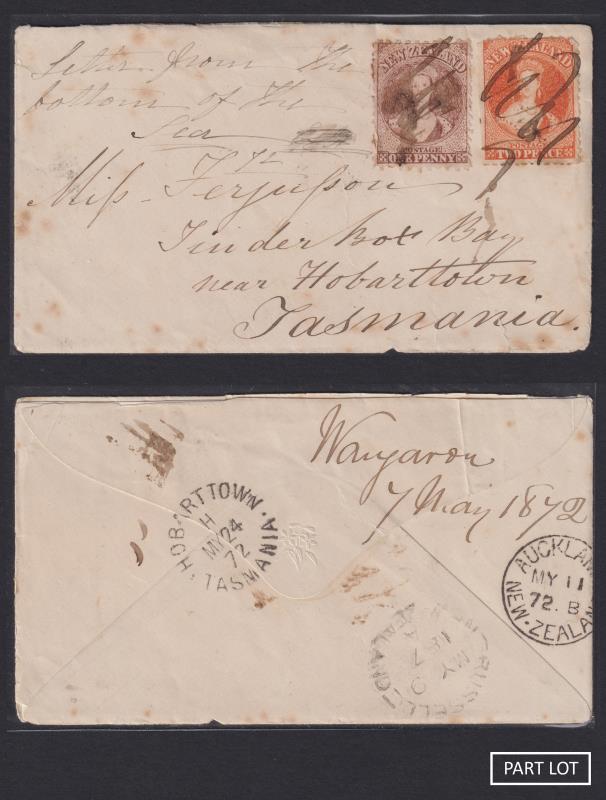 letter from the
bottom of the
Sea
NEW ZEALAND
POSTAGE
ONE PENNY
NEW ZEALAND
POSTAGE
TWO PENCE
Miss Fergusson
Tinder Box Bay
near Hobarttown
Tasmania.
Wangaroa
7 May 1872
HOBART TOWN · TASMANIA
H
MY 24
72
AUCKLAN
MY 11
72. B
NEW · ZEALAN
RUSSELL
NEW ZEALAND
MY 9
187
PART LOT